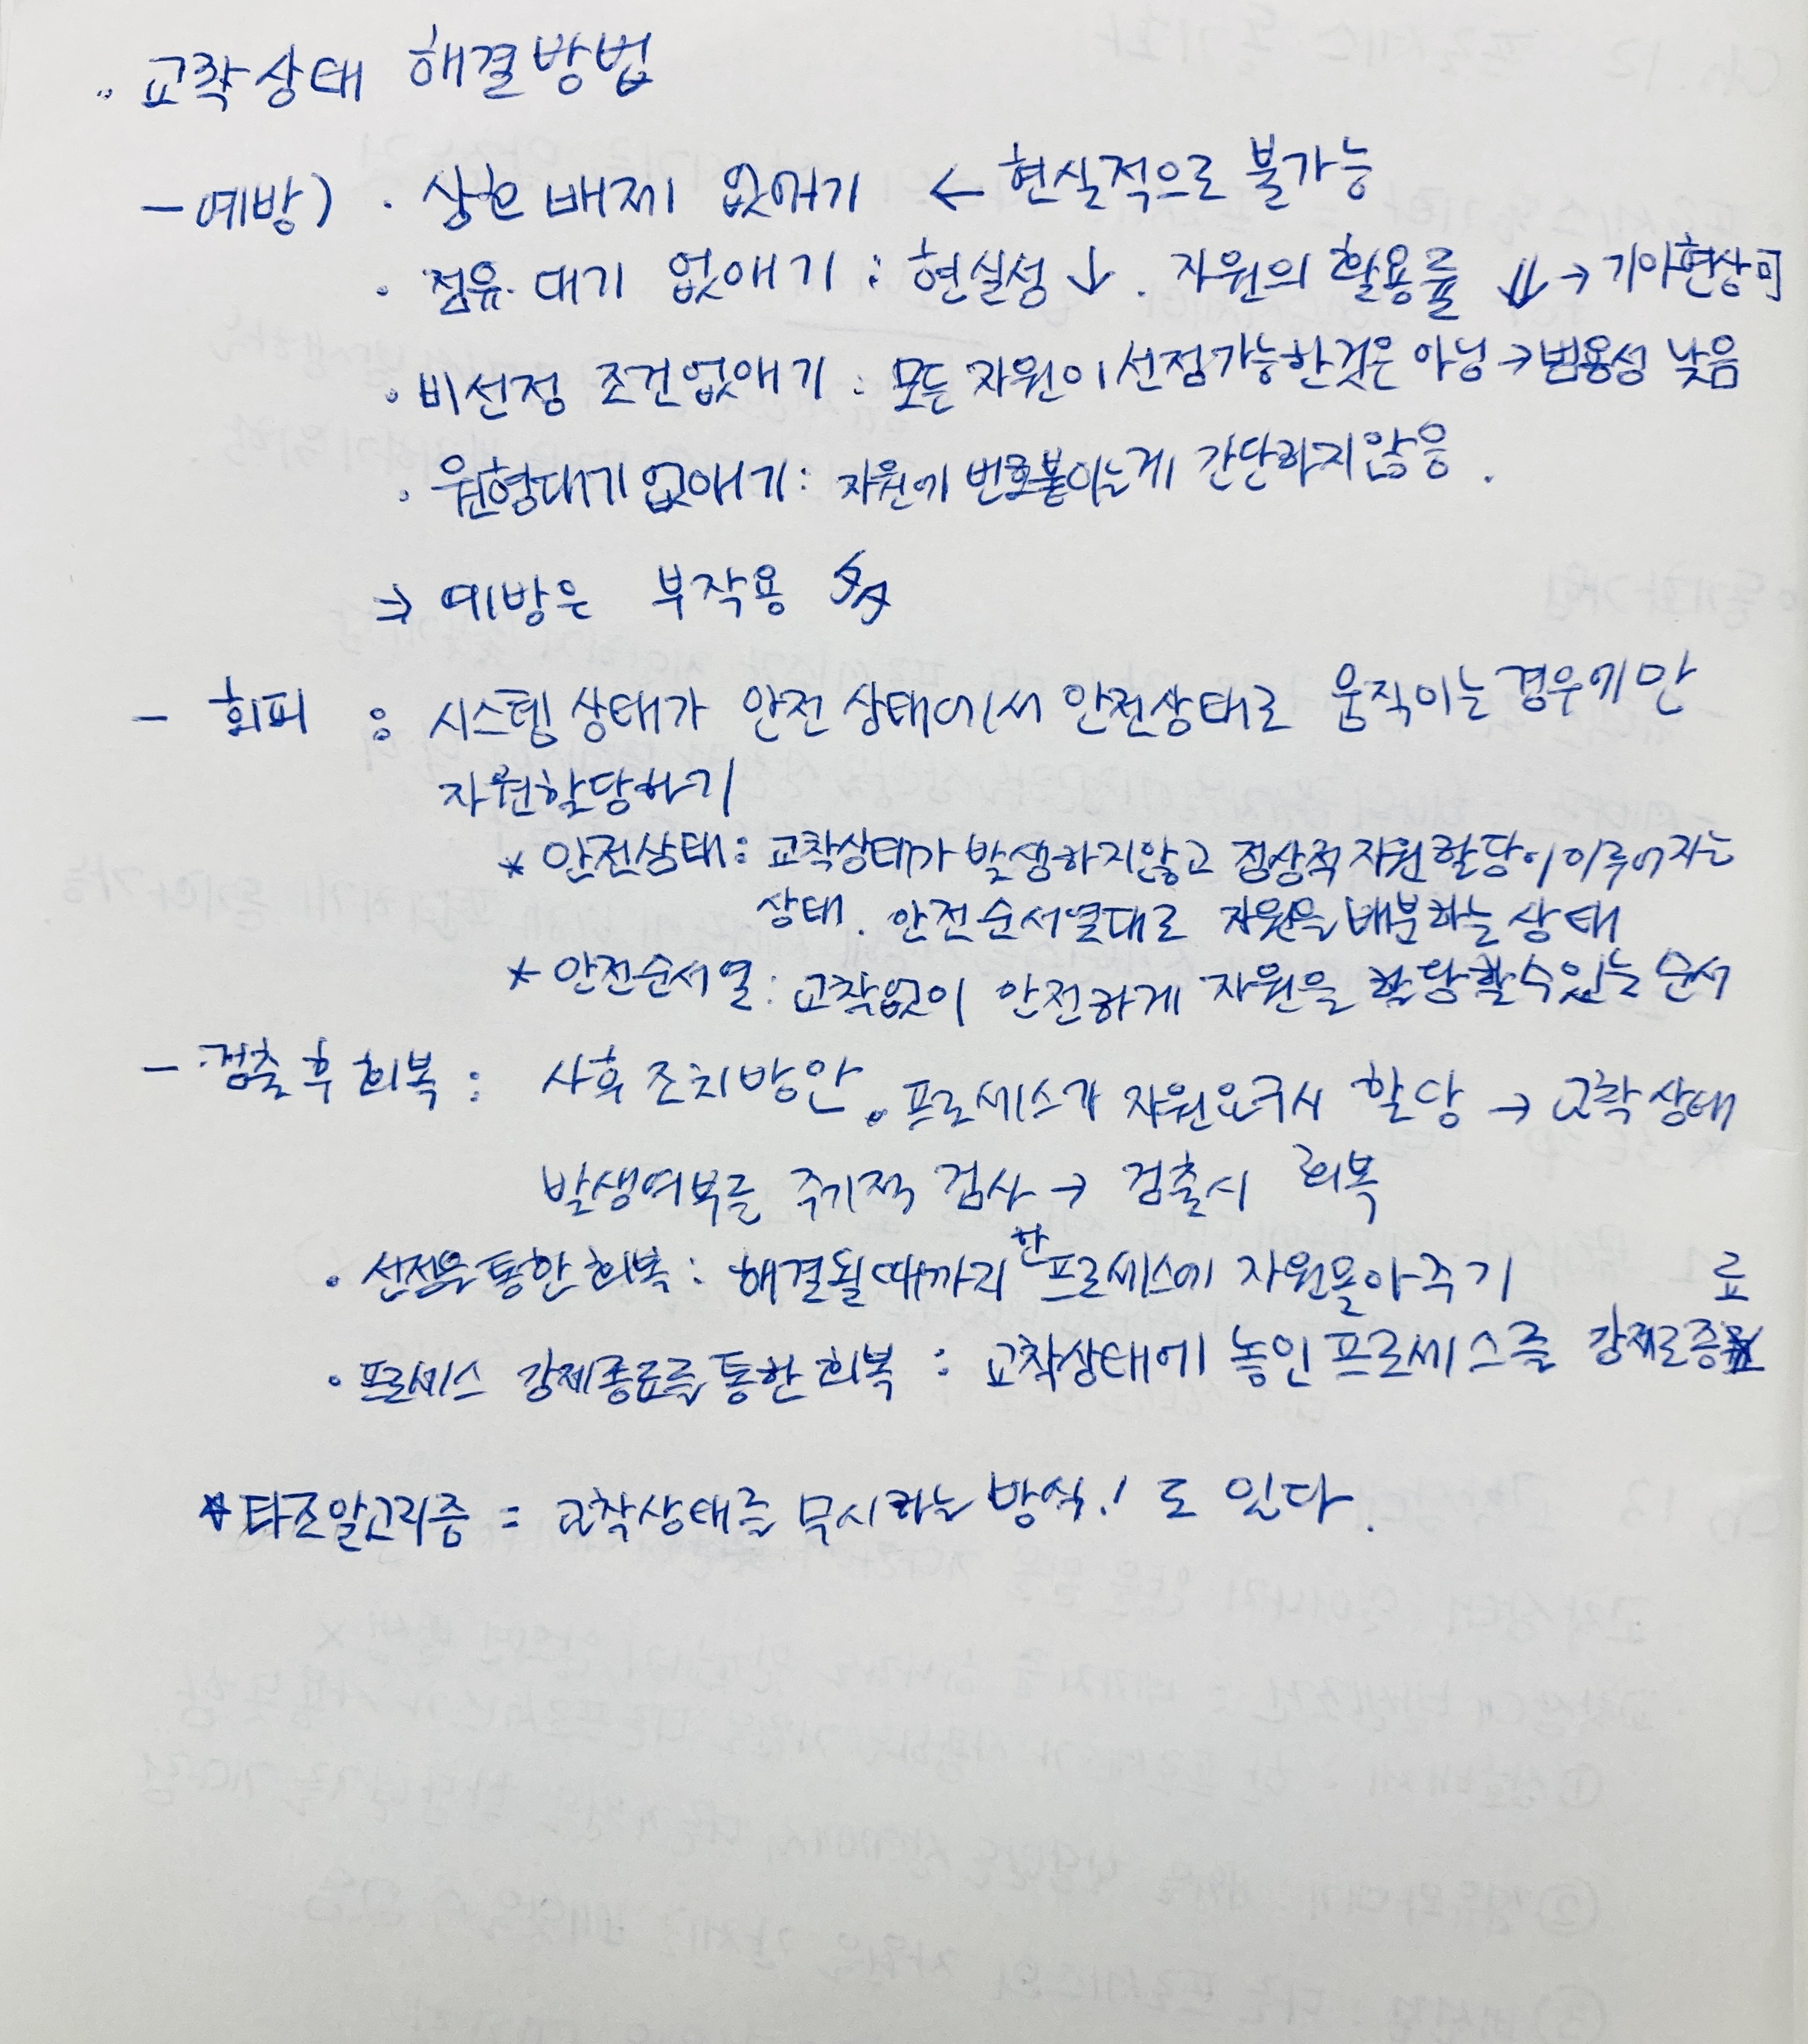 · 교착상태 해결방법
- 예방) · 상호배제 없애기 ← 현실적으로 불가능
· 점유 대기 없애기 : 현실성 ↓. 자원의 활용률 ⇓ → 기아현상 可
· 비선점 조건없애기 : 모든 자원이 선점가능한것은 아님 → 범용성 낮음
· 원형대기 없애기 : 자원에 번호붙이는게 간단하지않음.
⇒ 예방은 부작용 多
- 회피 : 시스템 상태가 안전 상태에서 안전상태로 움직이는 경우에만
자원할당하기
* 안전상태 : 교착상태가 발생하지않고 정상적 자원할당이 이루어지는
상태. 안전순서열대로 자원을 배분하는 상태
* 안전순서열 : 교착없이 안전하게 자원을 할당할수있는 순서
- 검출 후 회복 : 사후 조치방안. 프로세스가 자원요구시 할당 → 교착상태
발생여부를 주기적 검사 → 검출시 회복
· 선점을 통한 회복 : 해결될때까지 한 프로세스에 자원몰아주기
· 프로세스 강제종료를 통한 회복 : 교착상태에 놓인 프로세스를 강제로종료
* 타조알고리즘 = 교착상태를 무시하는 방식! 도 있다.